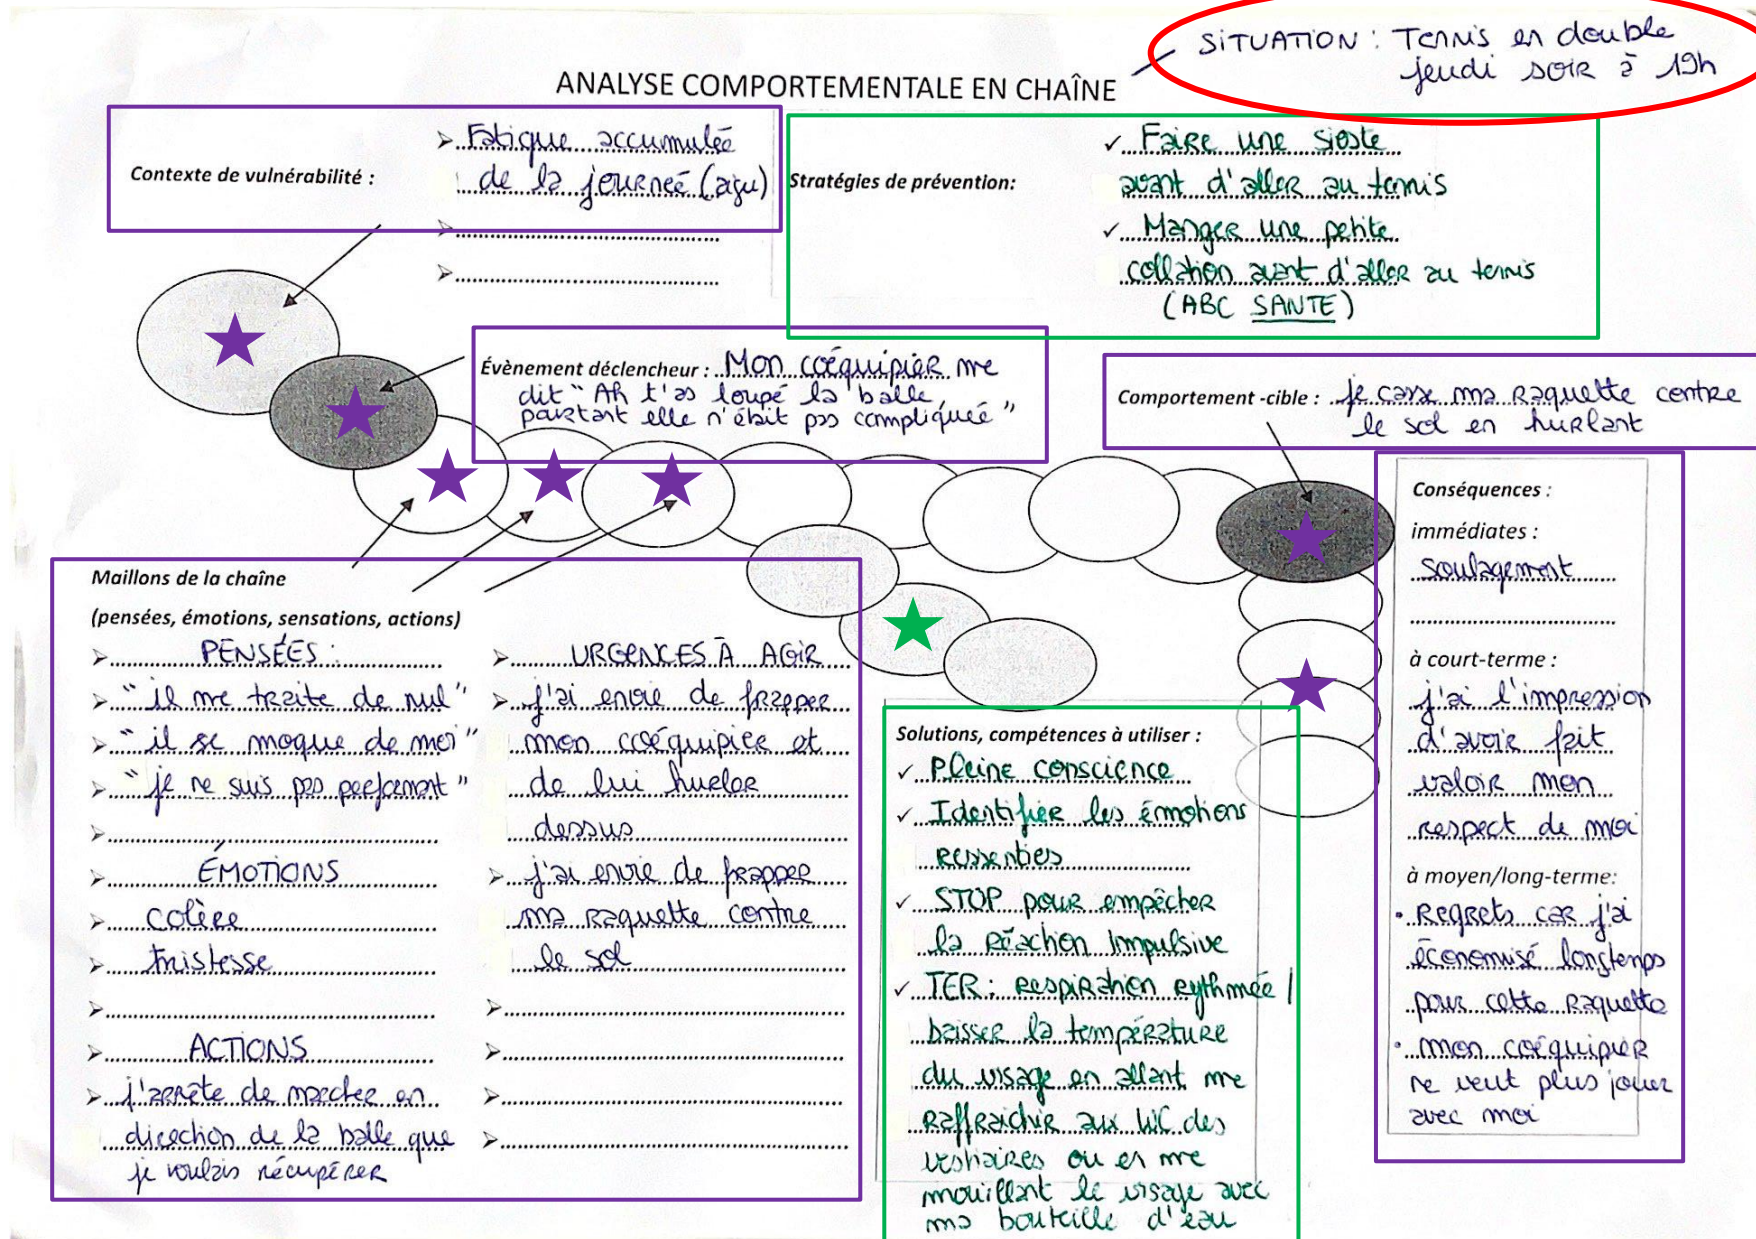 SITUATION : Tennis en double
jeudi soir à 19h
ANALYSE COMPORTEMENTALE EN CHAÎNE
Contexte de vulnérabilité :
Fatigue accumulée
de la journeé (aigu)
Stratégies de prévention:
Faire une sieste
avant d'aller au tennis
Manger une petite
collation avant d'aller au tennis
(ABC SANTE)
Évènement déclencheur : Mon coéquipier me
dit "Ah t'as loupé la balle,
pourtant elle n'était pas compliqueé"
Comportement -cible : je casse ma raquette contre
le sol en hurlant
Maillons de la chaîne
(pensées, émotions, sensations, actions)
PENSÉES :
"il me traite de nul"
"il se moque de moi"
"je ne suis pas performant"
ÉMOTIONS
colère
tristesse
ACTIONS
j'arrête de marcher en
direction de la balle que
je voulais récupérer
URGENCES À AGIR
j'ai envie de frapper
mon coéquipier et
de lui hurler
dessus
j'ai envie de frapper
ma raquette contre
le sol
Solutions, compétences à utiliser :
Pleine conscience
Identifier les émotions
ressenties
STOP pour empêcher
la réaction impulsive
TER : respiration rythmée /
baisser la température
du visage en allant me
raffraichir aux WC des
vestiaires ou en me
mouillant le visage avec
ma bouteille d'eau
Conséquences :
immédiates :
soulagement
à court-terme :
j'ai l'impression
d'avoir fait
valoir mon
respect de moi
à moyen/long-terme:
• Regrets car j'ai
économisé longtemps
pour cette raquette
• mon coéquipier
ne veut plus jouer
avec moi